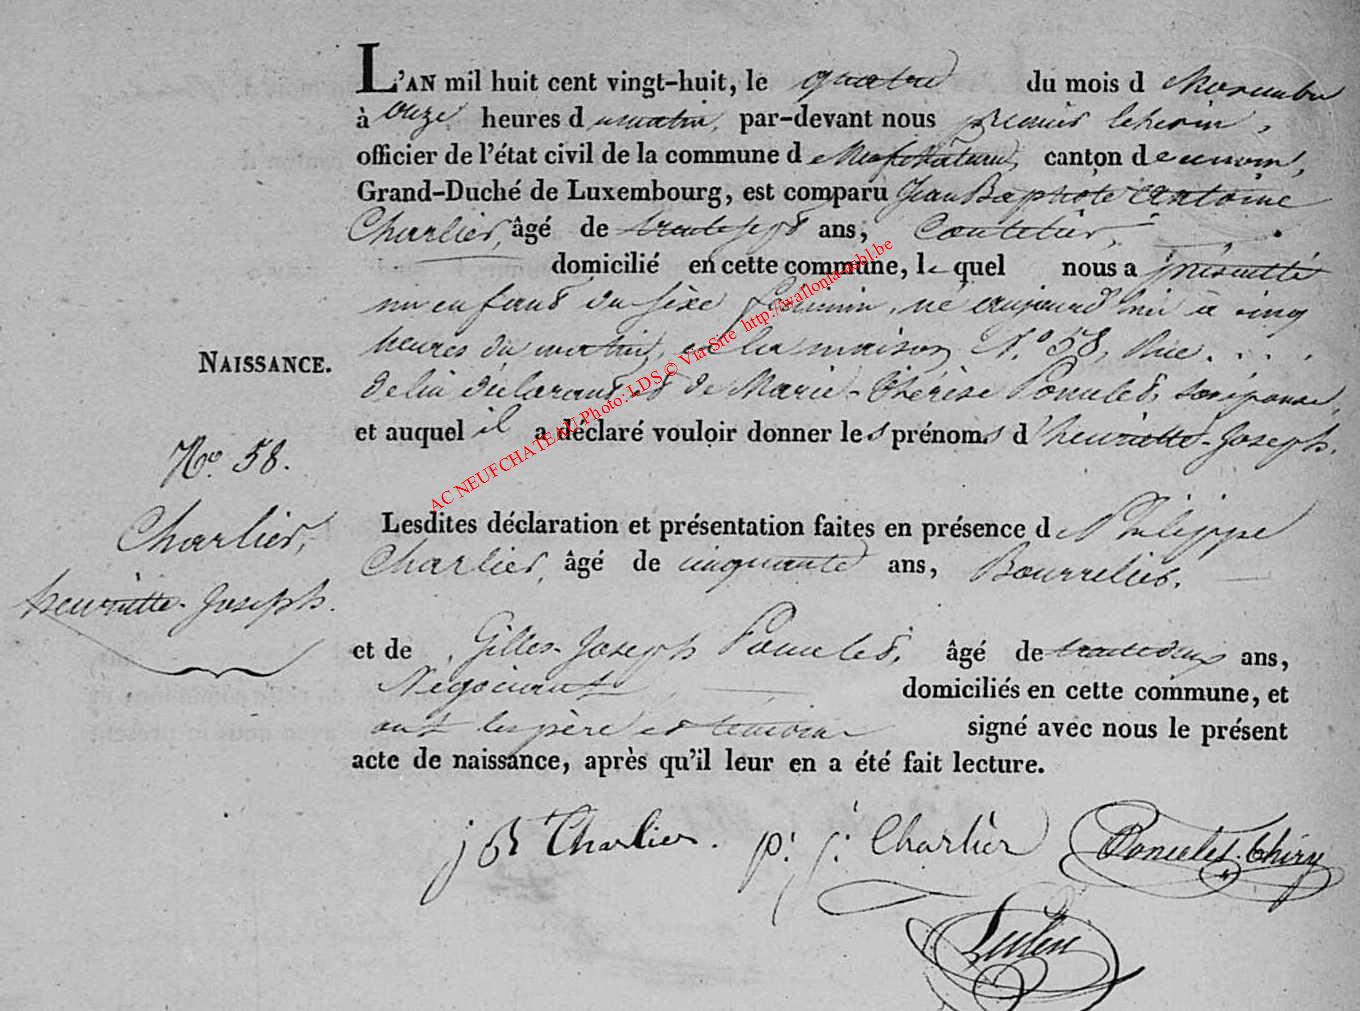 L'AN mil huit cent vingt-huit, le quatre du mois d e Novembre
à onze heures d u matin, par-devant nous premier échevin,
officier de l'état civil de la commune d e Neufchâteau, canton d e ce nom,
Grand-Duché de Luxembourg, est comparu Jean Baptiste Antoine
Charlier, âgé de trente sept ans, Coutelier,
domicilié en cette commune, le quel nous a présenté
un enfant du sexe féminin, né aujourd'hui à cinq
heures du matin, en la maison N.º 58, Rue . . . .
NAISSANCE.
de lui déclarant et de Marie-Thérèse Poncelet, son épouse,
et auquel il a déclaré vouloir donner les prénoms d'henriette-Joseph.
Nº. 58.
Charlier,
henriette-Joseph.
Lesdites déclaration et présentation faites en présence d e Philippe
Charlier, âgé de cinquante ans, Bourrelier.
et de Gilles-Joseph Poncelet, âgé de trente deux ans,
Négociant, domiciliés en cette commune, et
ont les père et témoins signé avec nous le présent
acte de naissance, après qu'il leur en a été fait lecture.
j B Charlier. p. j. Charlier Poncelet-Thiry
AC NEUFCHATEAU Photo: LDS © Via Site http://wallonia-asbl.be